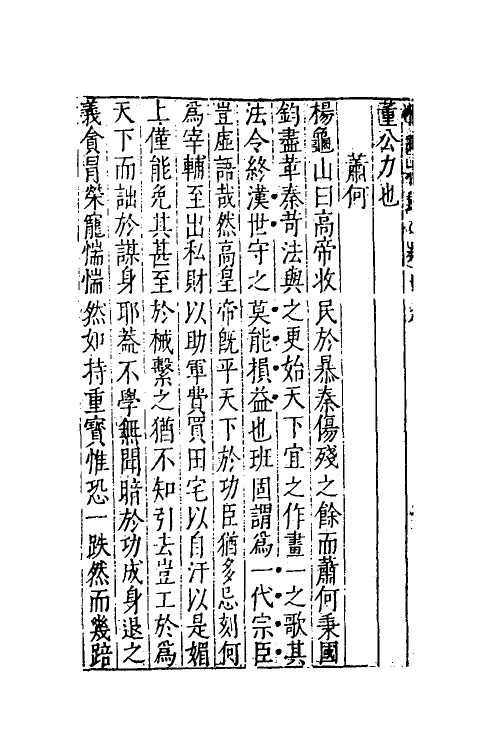 董公力也
蕭何
楊龜山曰高帝收民於暴秦傷殘之餘而蕭何秉國
鈞盡革秦苛法與之更始天下宜之作畫一之歌其
法令終漢世守之莫能損益也班固謂為一代宗臣
豈虛語哉然高皇帝旣平天下於功臣猶多忌刻何
為宰輔至出私財以助軍費買田宅以自汙以是媚
上僅能免其甚至於械繫之猶不知引去豈工於為
天下而詘於謀身耶葢不學無聞暗於功成身退之
義貪冐榮寵惴惴然如持重寳惟恐一跌然而幾踣